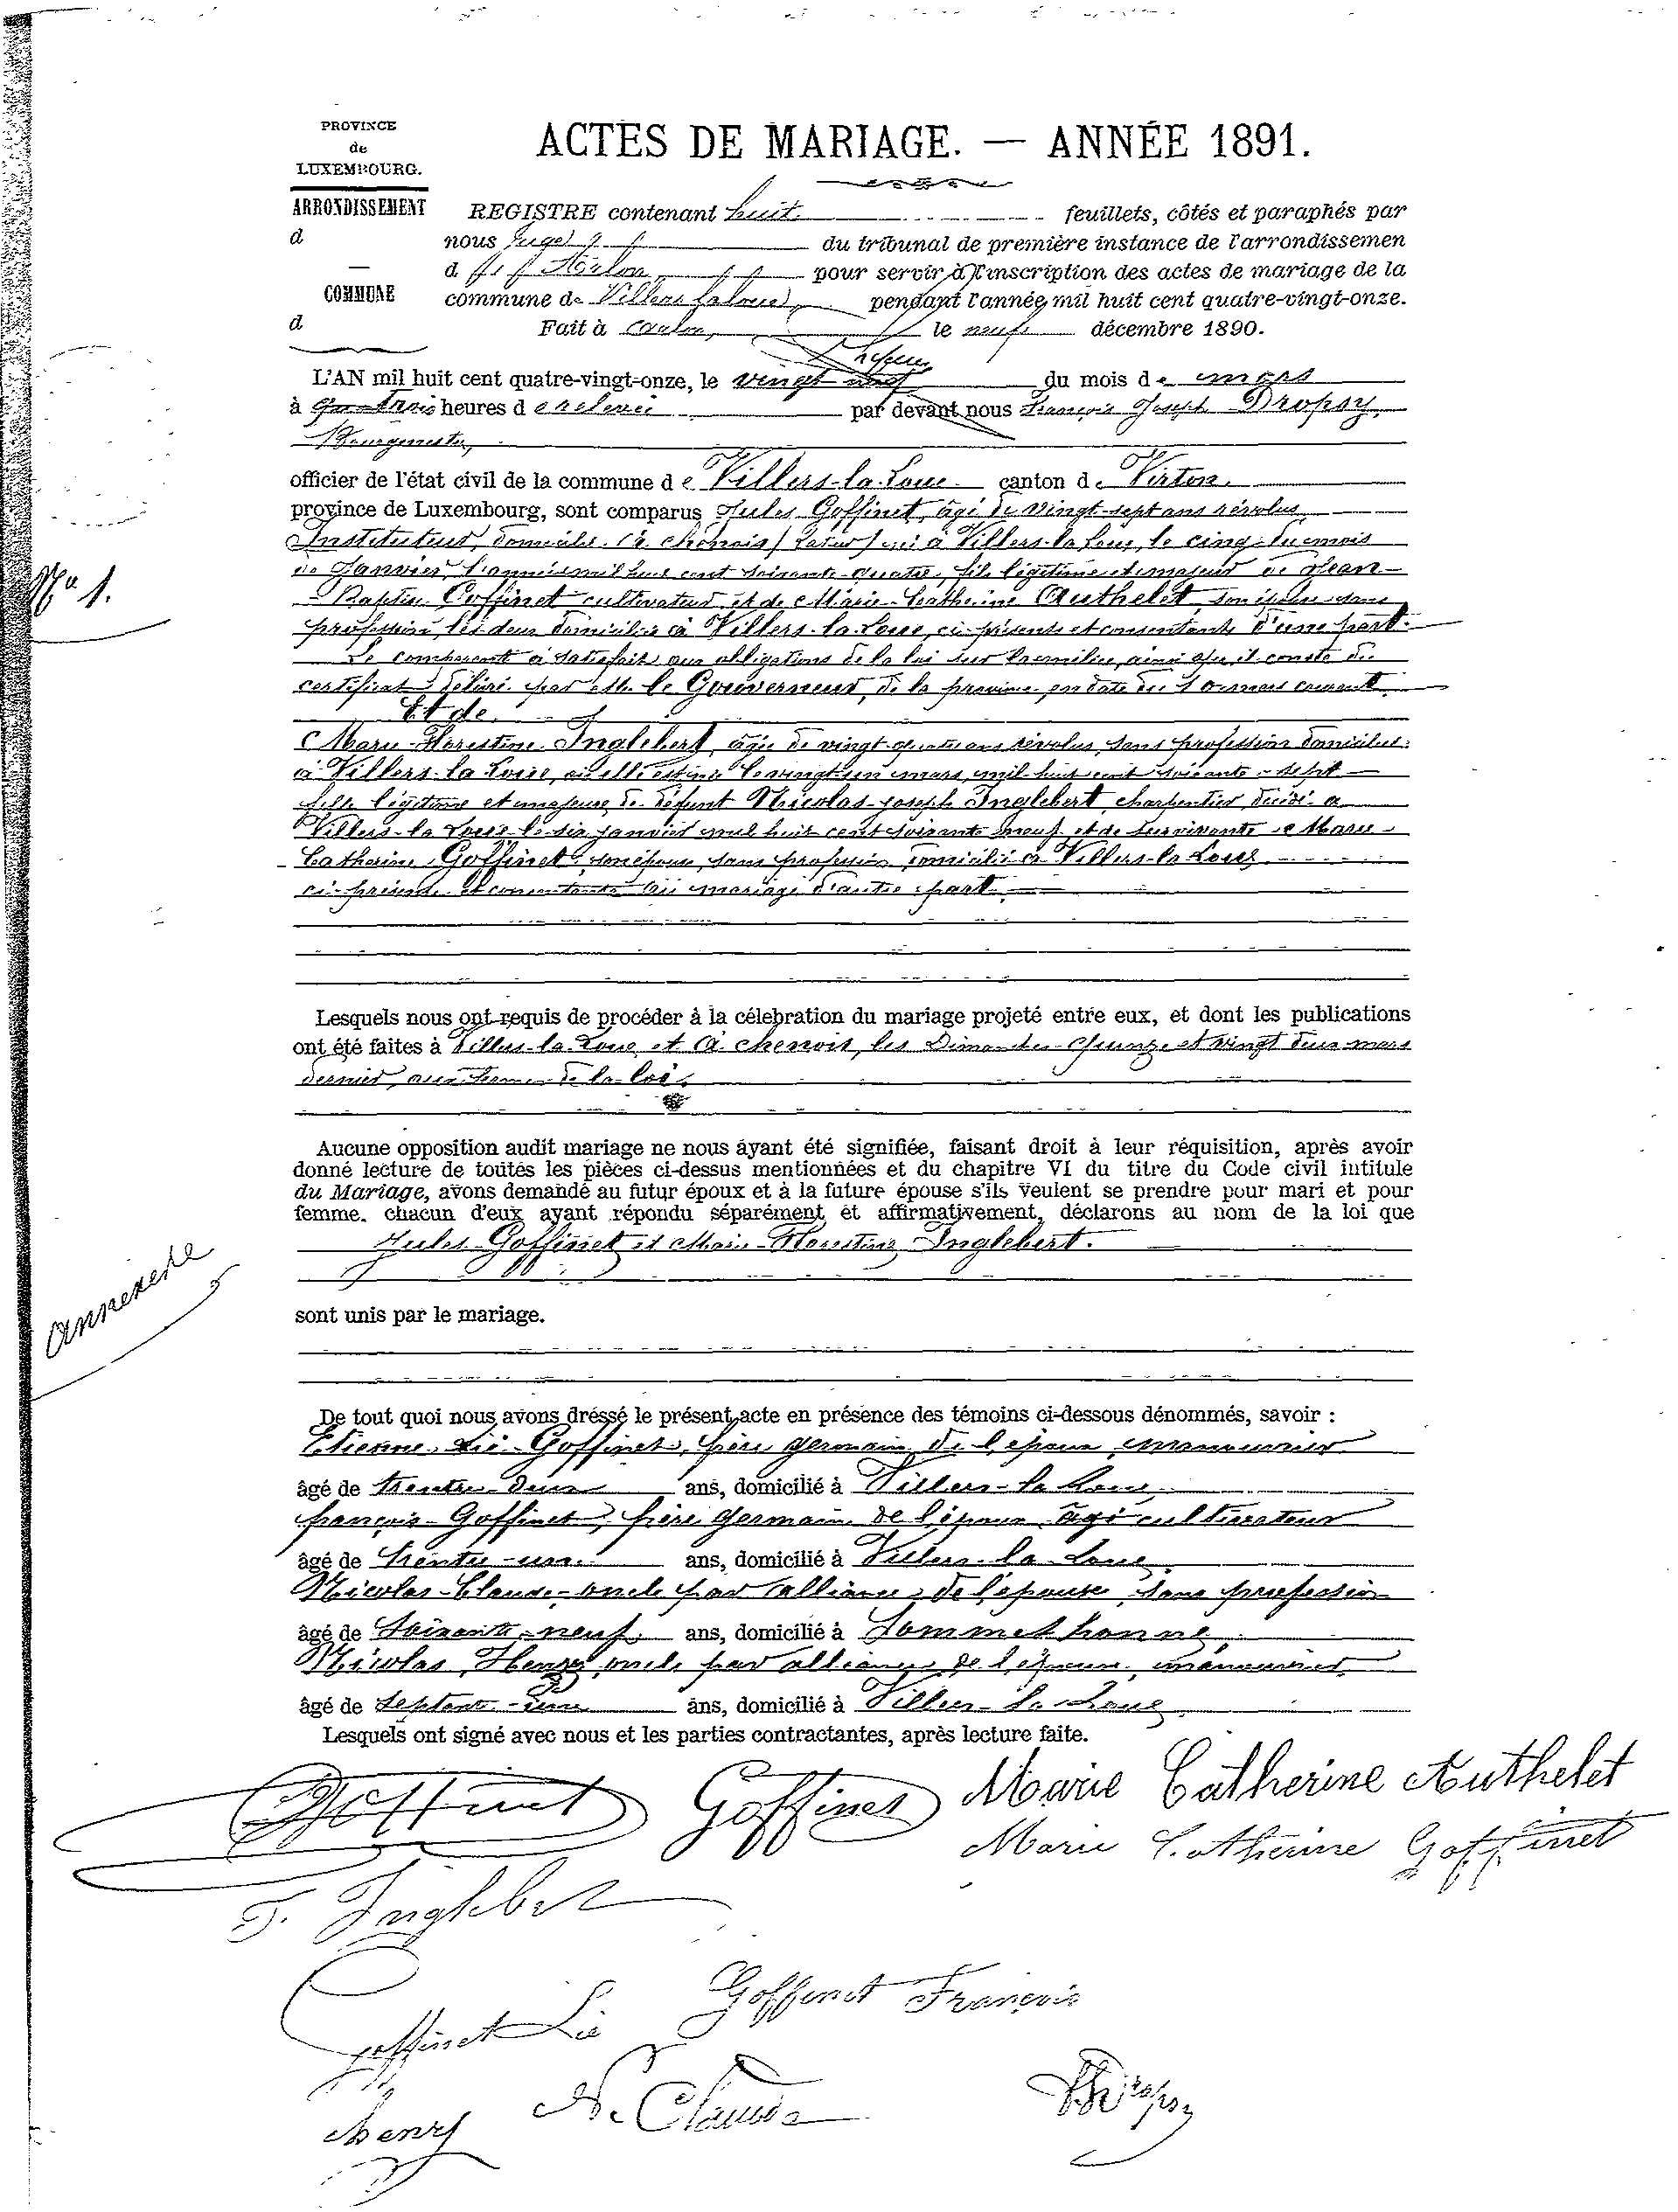 PROVINCE
de
LUXEMBOURG.
ARRONDISSEMENT
d
COMMUNE
d
ACTES DE MARIAGE. — ANNÉE 1891.
REGISTRE contenant huit feuillets, côtés et paraphés par
nous Juge du tribunal de première instance de l'arrondissemen
d Arlon pour servir à l'inscription des actes de mariage de la
commune de Villers la loue pendant l'année mil huit cent quatre-vingt-onze.
Fait à arlon, le neuf décembre 1890.
L'AN mil huit cent quatre-vingt-onze, le vingt du mois de mars
à trois heures d par devant nous François Joseph Dropsy,
Bourgmestre,
officier de l'état civil de la commune de Villers-la-Loue canton de Virton
province de Luxembourg, sont comparus Jules Goffinet, âgé de vingt-sept ans révolus,
Instituteur, domicilié à chenois / Latour / né à Villers-la-Loue, le cinq du mois
de Janvier, l'année mil huit cent soixante-quatre, fils légitime et majeur de Jean-
Baptiste Goffinet cultivateur et de Marie-Catherine Authelet, son épouse sans
profession, les deux domiciliés à Villers-la-Loue, ci-présents et consentants d'une part.
Le comparant a satisfait aux obligations de la loi sur la milice, ainsi qu'il conste du
certificat délivré par Mr le Gouverneur, de la province en date du 10 mars courant
Et de
Marie-Florestine Inglebert, âgée de vingt-quatre ans révolus, sans profession domiciliée
à Villers-la-Loue, où elle est née le vingt-un mars, mil huit cent soixante-sept
fille légitime et majeure de défunt Nicolas-Joseph Inglebert, charpentier, décédé à
Villers-la-Loue le six janvier mil huit cent soixante neuf et de survivante Marie-
Catherine Goffinet, son épouse, sans profession, domiciliée à Villers-la-Loue
ci-présente et consentante au mariage d'autre part.
Lesquels nous ont requis de procéder à la célebration du mariage projeté entre eux, et dont les publications
ont été faites à Villers-la-Loue et à chenois, les Dimanches Quinze et vingt deux mars
dernier, aux termes de la loi.
Aucune opposition audit mariage ne nous ayant été signifiée, faisant droit à leur réquisition, après avoir
donné lecture de toutes les pièces ci-dessus mentionnées et du chapitre VI du titre du Code civil intitule
du Mariage, avons demandé au futur époux et à la future épouse s'ils veulent se prendre pour mari et pour
femme. chacun d'eux ayant répondu séparément et affirmativement, déclarons au nom de la loi que
Jules Goffinet et Marie-Florestine Inglebert.
sont unis par le mariage.
De tout quoi nous avons dréssé le présent acte en présence des témoins ci-dessous dénommés, savoir :
Etienne Lié Goffinet, frère germain de l'époux manouvrier
âgé de trente-deux ans, domicilié à Villers-la-Loue
françois-Goffinet, frère germain de l'époux âgé cultivateur
âgé de trente-un ans, domicilié à Villers-la-Loue
Nicolas-Claude-oncle par alliance de l'épouse sans profession
âgé de Soixante-neuf ans, domicilié à Sommethonne,
Nicolas Henry oncle par alliance de l'époux, manouvrier
âgé de septante-un ans, domicilié à Villers-la-Loue
Lesquels ont signé avec nous et les parties contractantes, après lecture faite.
No 1.
annexes
JGoffinet Goffinet Marie Catherine Authelet
Marie Catherine Goffinet
F. Inglebert
Goffinet François
Goffinet Lié
N. Claude
henry
Dropsy